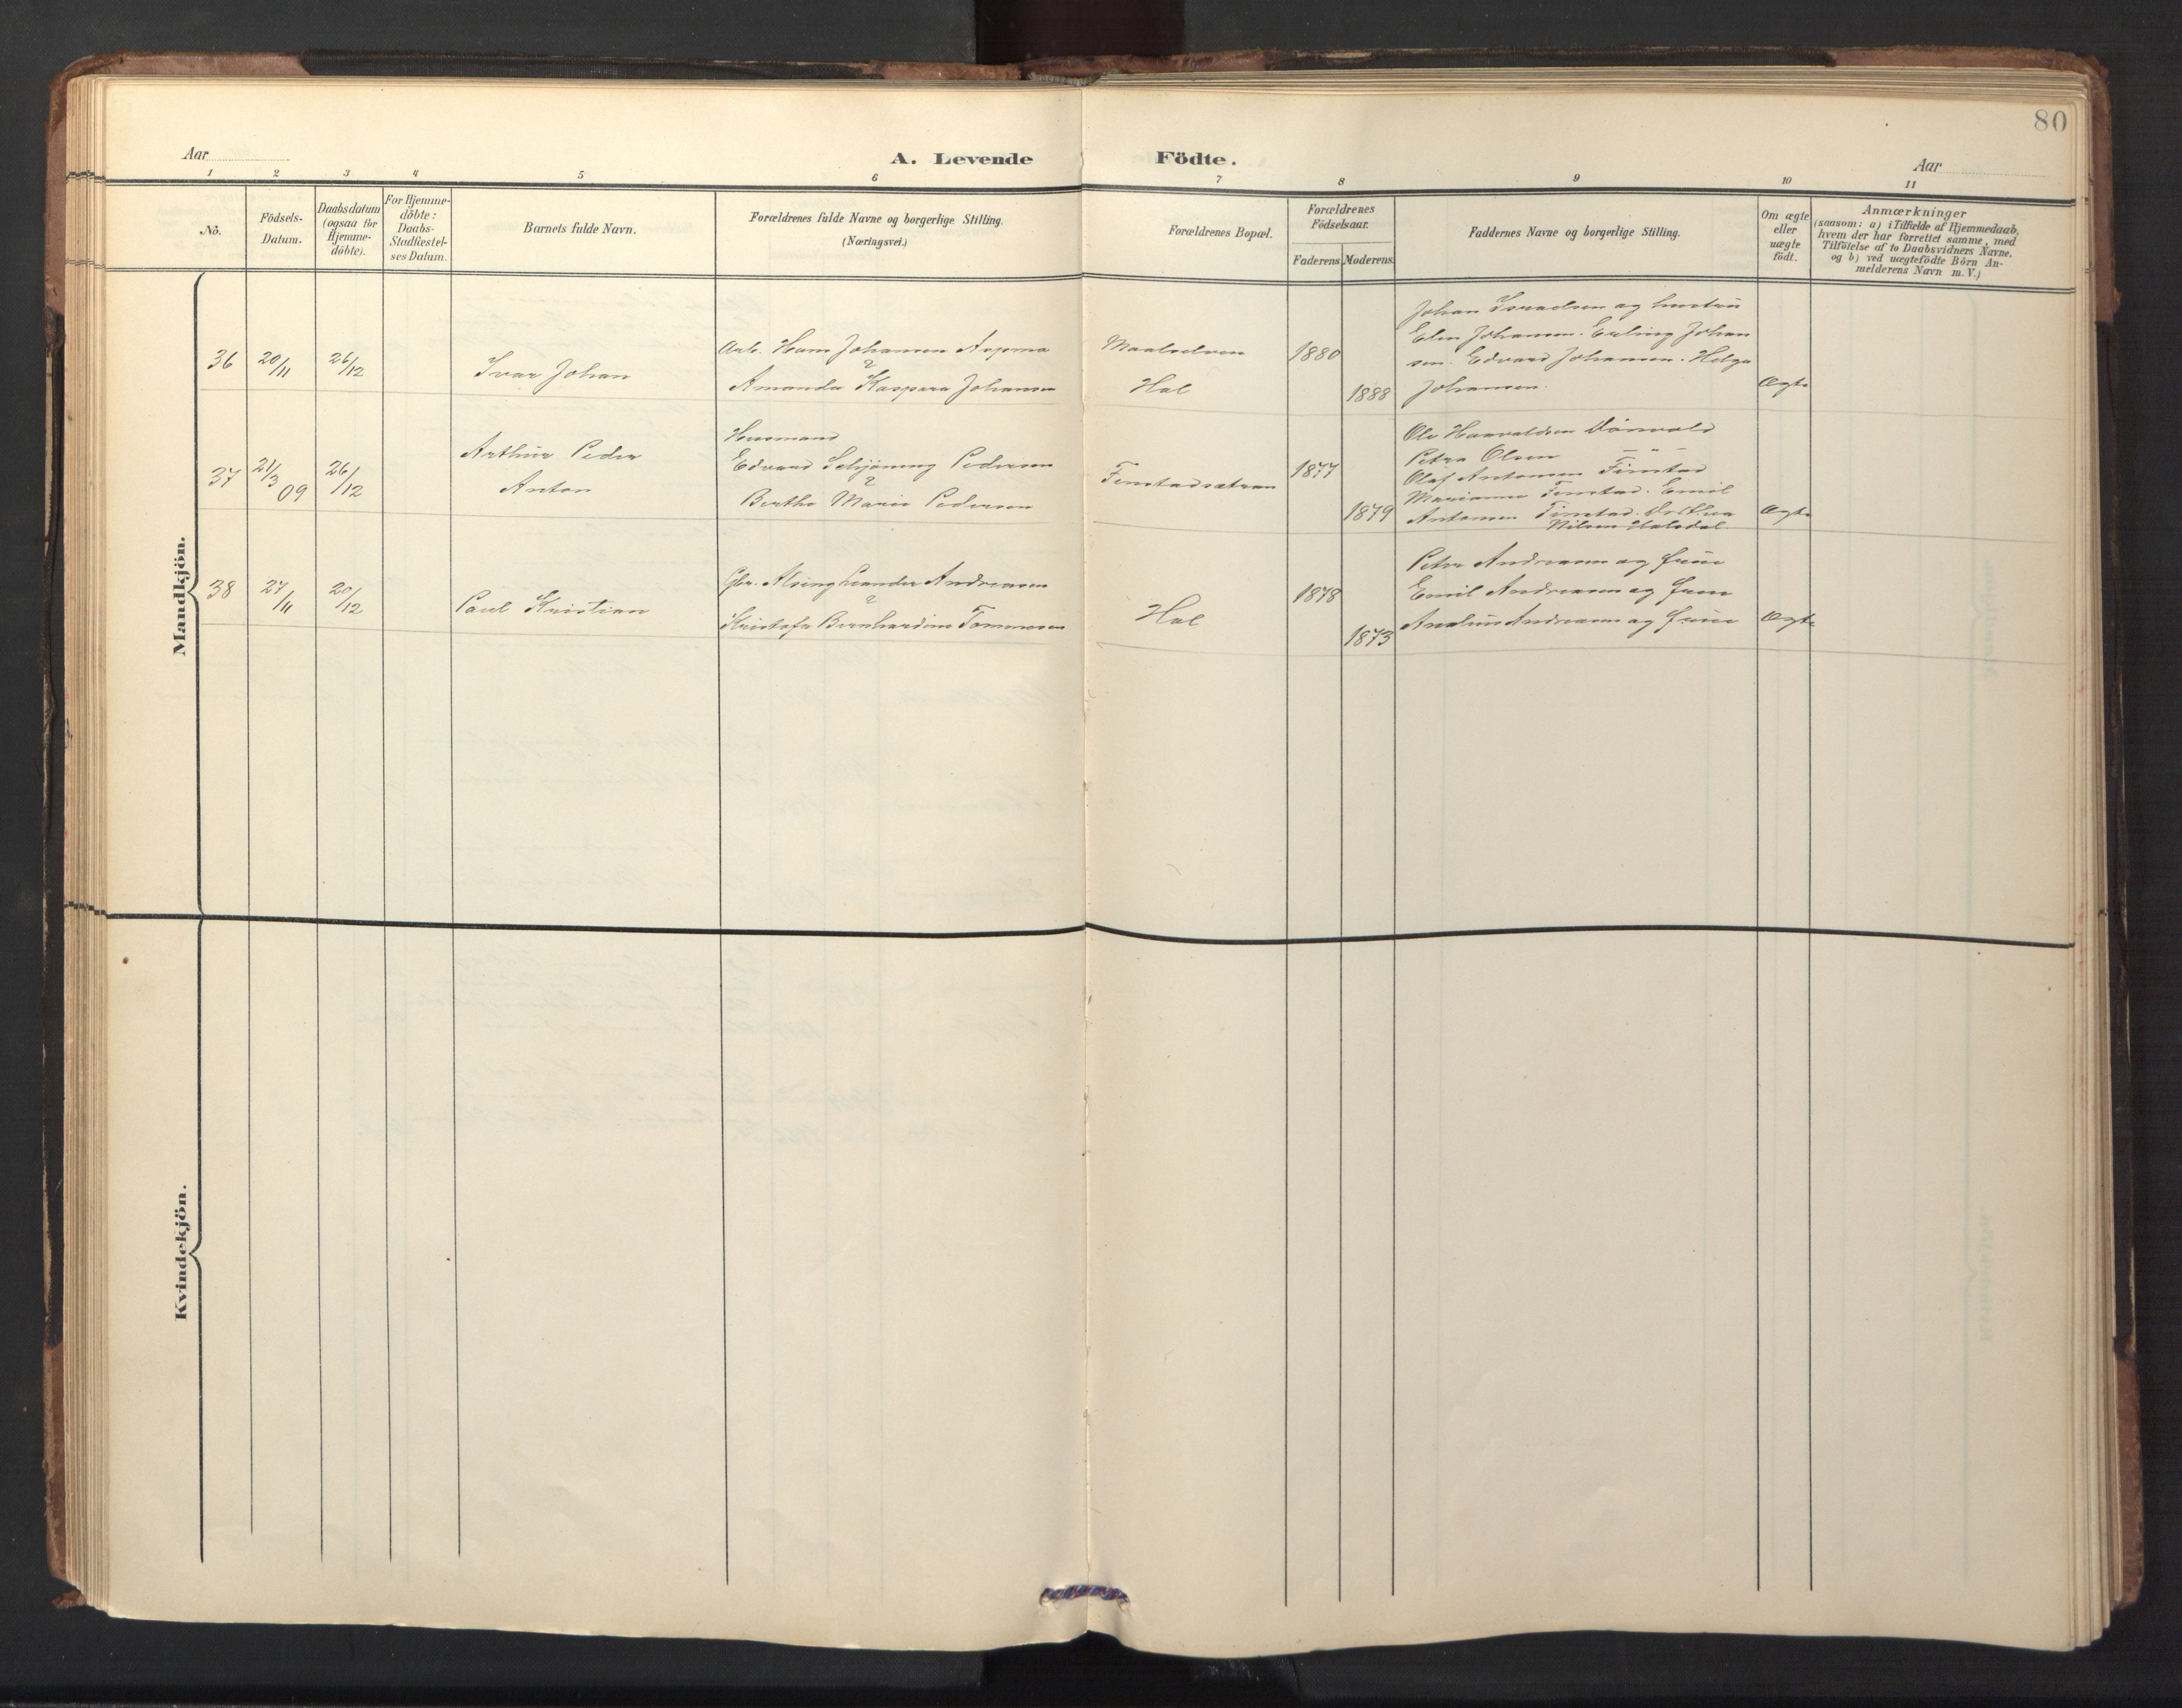 80
Aar
A. Levende Födte.
Aar
1 2 3 4 5 6 7 8 9 10 11
No.
Födsels-
Datum.
Daabsdatum
(ogsaa for
Hjemme-
döbte).
For Hjemme-
döbte:
Daabs-
Stadfæstel-
ses Datum.
Barnets fulde Navn.
Forældrenes fulde Navne og borgerlige Stilling.
(Næringsvei.)
Forældrenes Bopæl.
Forældrenes
Födselsaar.
Faderens
Moderens
Faddernes Navne og borgerlige Stilling.
Om ægte
eller
uægte
födt.
Anmærkninger
(saasom: a) i Tilfælde af Hjemmedaab,
hvem der har forrettet samme, med
Tilföielse af to Daabsvidners Navne,
og b) ved uægtefödte Börn An-
melderens Navn m. V.)
Mandkjön.
36
20/11
26/12
Ivar Johan
Arb. Hans Johansen Aspmo
Amanda Kaspara Johansen
Maalselven
Hol
1880
1888
Johan Israelsen og hustru
Elen Johansen. Erling Johan
sen. Edvard Johansen. Helga
Johansen.
Ægte
37
21/3 09
26/12
Arthur Peder
Anton
Husmand
Edvard Schjöning Pedersen
Berthe Marie Pedersen
Finstadsætran
1877
1879
Ole Haavaldsen
Petra Olsen — " —
Olaf Antonsen Finstad
Marianne Finstad. Emil
Antonsen Finstad. Dorthea
Nilsen Halsdal.
Ægte
38
27/11
20/12
Paul Kristian
Gbr. Alsing Leander Andreasen
Kristofa Bernhardine Tommesen
Hol
1878
1873
Peter Andreasen og frue
Emil Andreasen og frue
Andreasen og frue
Ægte
Kvindekjön.